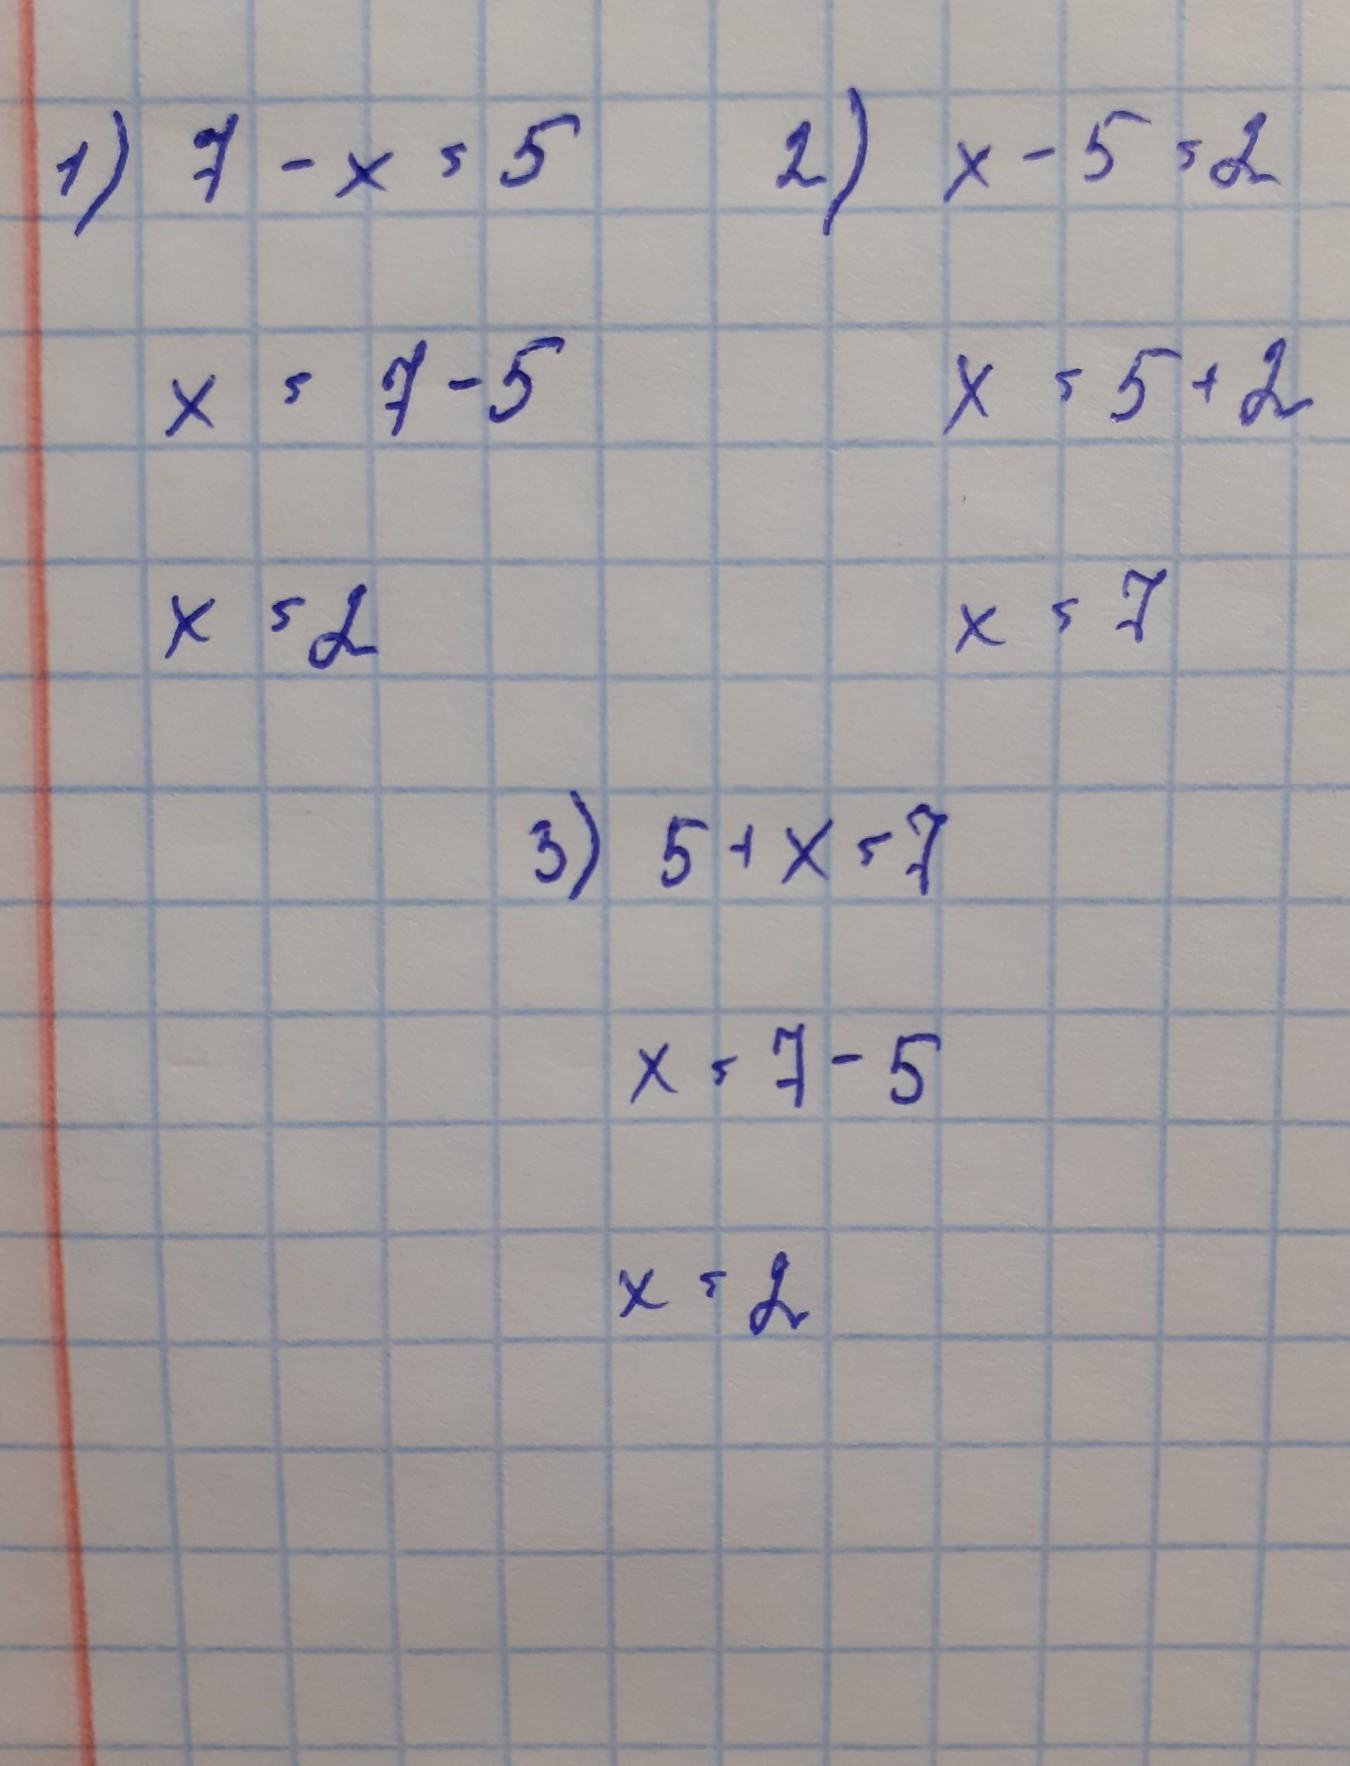 1) 7 - x = 5
x = 7 - 5
x = 2
2) x - 5 = 2
x = 5 + 2
x = 7
3) 5 + x = 7
x = 7 - 5
x = 2